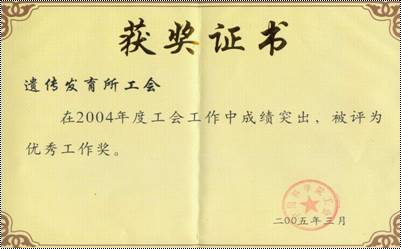 获奖证书
遗传发育所工会
在2004年度工会工作中成绩突出，被评为
优秀工作奖。
二〇〇五年三月